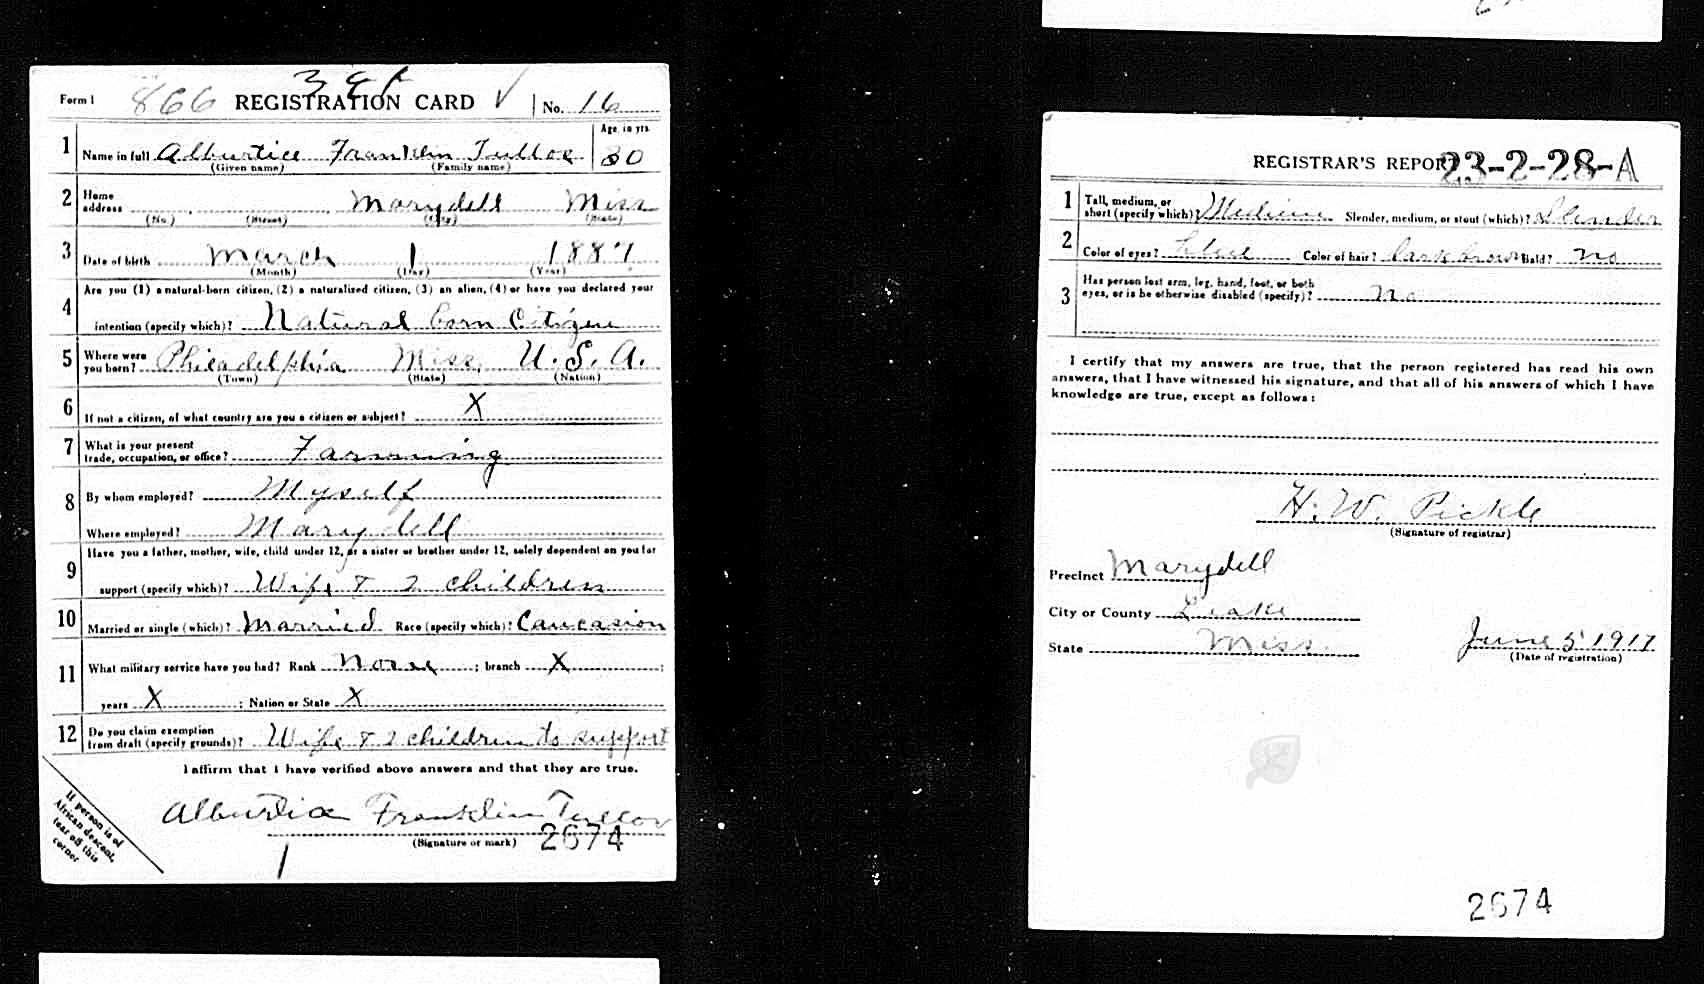 3 9 f
Form 1 866 REGISTRATION CARD √ No. 16
Age, in yrs.
1 Name in full Alburtice Franklin Tullos 30
(Given name) (Family name)
2 Home address Marydell Miss
(No.) (Street) (City) (State)
3 Date of birth March 1 1887
(Month) (Day) (Year)
4 Are you (1) a natural-born citizen, (2) a naturalized citizen, (3) an alien, (4) or have you declared your
intention (specify which)? Natural born Citizen
5 Where were you born? Philadelphia Miss. U.S.A.
(Town) (State) (Nation)
6 If not a citizen, of what country are you a citizen or subject? X
7 What is your present trade, occupation, or office? Farming
8 By whom employed? Myself
Where employed? Marydell
9 Have you a father, mother, wife, child under 12, or a sister or brother under 12, solely dependent on you for
support (specify which)? Wife & 2 children
10 Married or single (which)? Married Race (specify which)? Caucasion
11 What military service have you had? Rank None ; branch X ;
years X ; Nation or State X
12 Do you claim exemption from draft (specify grounds)? Wife & 2 children to support
I affirm that I have verified above answers and that they are true.
Franklin Tullos
(Signature or mark) 2674
If person is of
African descent,
tear off this
corner
REGISTRAR'S REPORT 23-2-28-A
1 Tall, medium, or short (specify which)? Medium Slender, medium, or stout (which)? Slender
2 Color of eyes? Blue Color of hair? Dark brown Bald? no
3 Has person lost arm, leg, hand, foot, or both
eyes, or is he otherwise disabled (specify)? no
I certify that my answers are true, that the person registered has read his own
answers, that I have witnessed his signature, and that all of his answers of which I have
knowledge are true, except as follows:
H. W. Pickle
(Signature of registrar)
Precinct Marydell
City or County Leake
State Miss. June 5 1917
(Date of registration)
2674